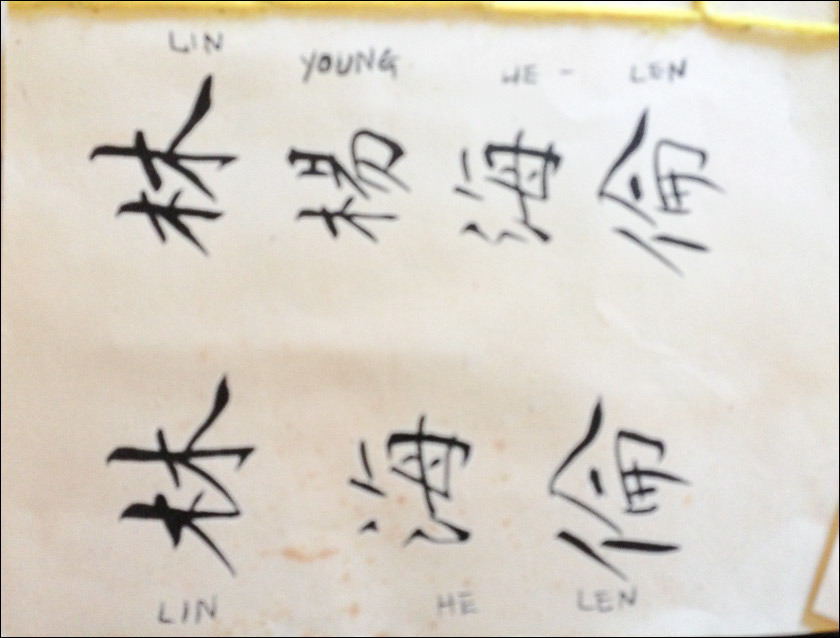 LIN YOUNG HE - LEN
林楊海倫
林海倫
LIN HE LEN